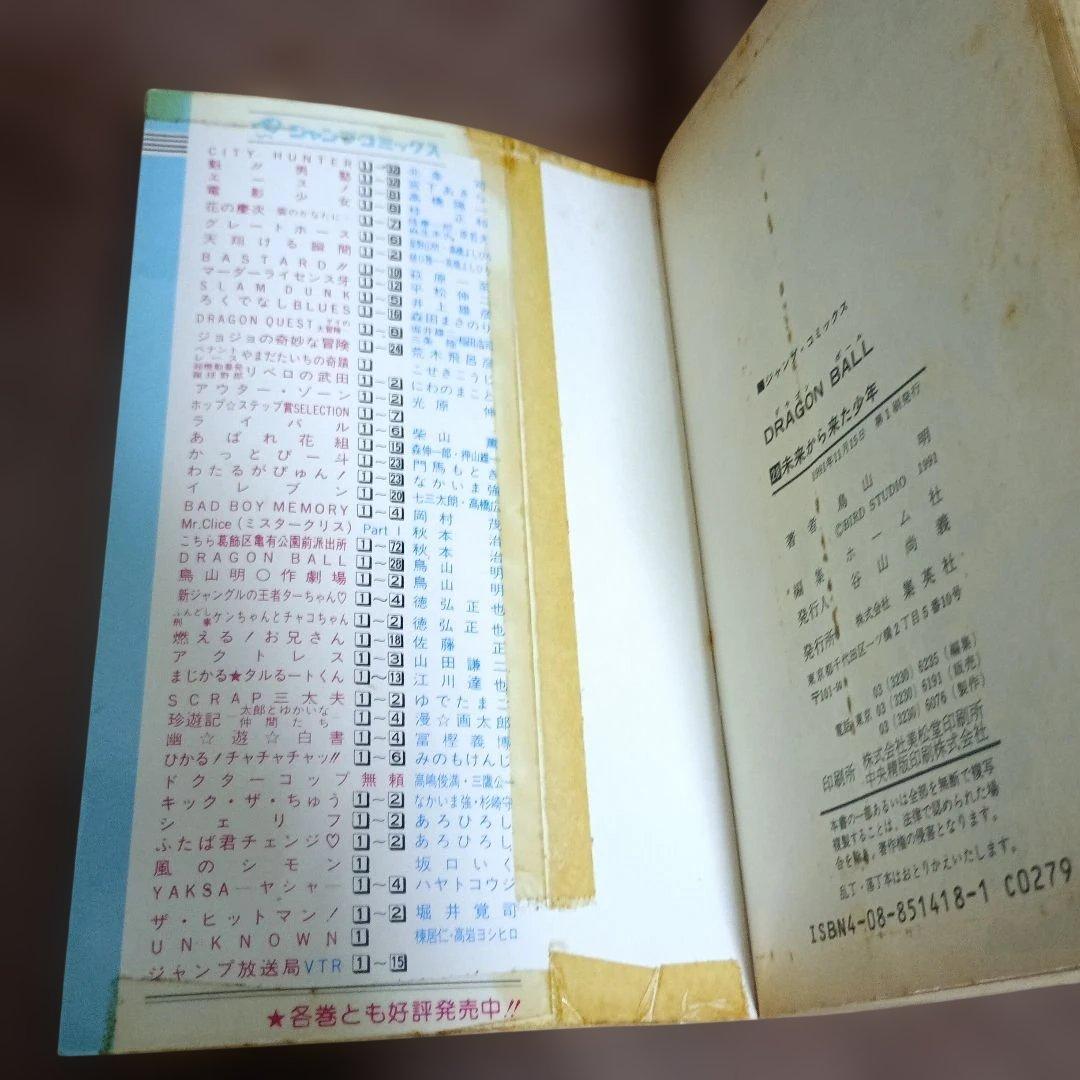 ジャンプコミックス
CITY HUNTER 1〜 北条 司
魁!!男塾 1〜 宮下あきら
エース! 1〜 高橋陽一
電影少女 1〜 桂 正和
花の慶次 雲のかなたに 1〜7
グレートホース 1〜
天翔ける瞬間 1〜2
BASTARD!! 1〜10 萩原一至
マーダーライセンス牙 1〜12 平松伸二
SLAM DUNK 1〜5 井上雄彦
ろくでなしBLUES 1〜 森田まさのり
DRAGON QUEST ダイの大冒険 1〜 三条 陸 堀井雄二・稲田浩司
ジョジョの奇妙な冒険 1〜24 荒木飛呂彦
ペナントレース やまだたいちの奇蹟 1 こせきこうじ
超機動暴発蹴球野郎 リベロの武田 1〜2 にわのまこと
アウター・ゾーン 1〜2 光原 伸
ホップ☆ステップ賞SELECTION 1〜7
ライバル 1〜6 柴山 薫
あばれ花組 1〜15 森伸一郎・押山雄一
かっとび一斗 1〜23 門馬もとき
わたるがぴゅん! 1〜23 なかいま強
イレブン 1〜20 七三太朗・高橋広
BAD BOY MEMORY 1〜4 岡村 茂
Mr.Clice(ミスタークリス) Part I 秋本 治
こちら葛飾区亀有公園前派出所 1〜72 秋本 治
DRAGON BALL 1〜28 鳥山 明
鳥山明○作劇場 1〜2 鳥山 明
新ジャングルの王者ターちゃん♡ 1〜4 徳弘正也
ふんどし刑事ケンちゃんとチャコちゃん 1〜2 徳弘正也
燃える!お兄さん 1〜18 佐藤 正
アクトレス 1〜3 山田謙二
まじかる★タルるートくん 1〜13 江川達也
SCRAP三太夫 1〜2 ゆでたまご
珍遊記 太郎とゆかいな仲間たち 1〜4 漫☆画太郎
幽☆遊☆白書 1〜4 冨樫義博
ひかる!チャチャチャッ!! 1〜6 みのもけんじ
ドクターコップ無頼 高嶋俊満・三鷹公一
キック・ザ・ちゅう 1〜2 なかいま強・杉崎守
シェリフ 1〜2 あろひろし
ふたば君チェンジ♡ 1〜2 あろひろし
風のシモン 1 坂口いく
YAKSA―ヤシャ― 1〜4 ハヤトコウジ
ザ・ヒットマン! 1〜2 堀井覚司
UNKNOWN 1 棟居仁・高岩ヨシヒロ
ジャンプ放送局VTR 1〜15
★各巻とも好評発売中!!
■ジャンプ・コミックス
ドラゴン ボール
DRAGON BALL
28 未来から来た少年
1991年11月15日 第1刷発行
著者 鳥山 明
©BIRD STUDIO 1991
編集 ホーム社
発行人 谷山尚義
発行所 株式会社 集英社
東京都千代田区一ツ橋2丁目5番10号
〒101-50
03(3230)6235(編集)
電話 東京 03(3230)6191(販売)
03(3230)6076(製作)
印刷所 株式会社美松堂印刷所
中央精版印刷株式会社
本書の一部あるいは全部を無断で複写
複製することは、法律で認められた場
合を除き、著作権の侵害となります。
乱丁・落丁本はおとりかえいたします。
ISBN4-08-851418-1 C0279